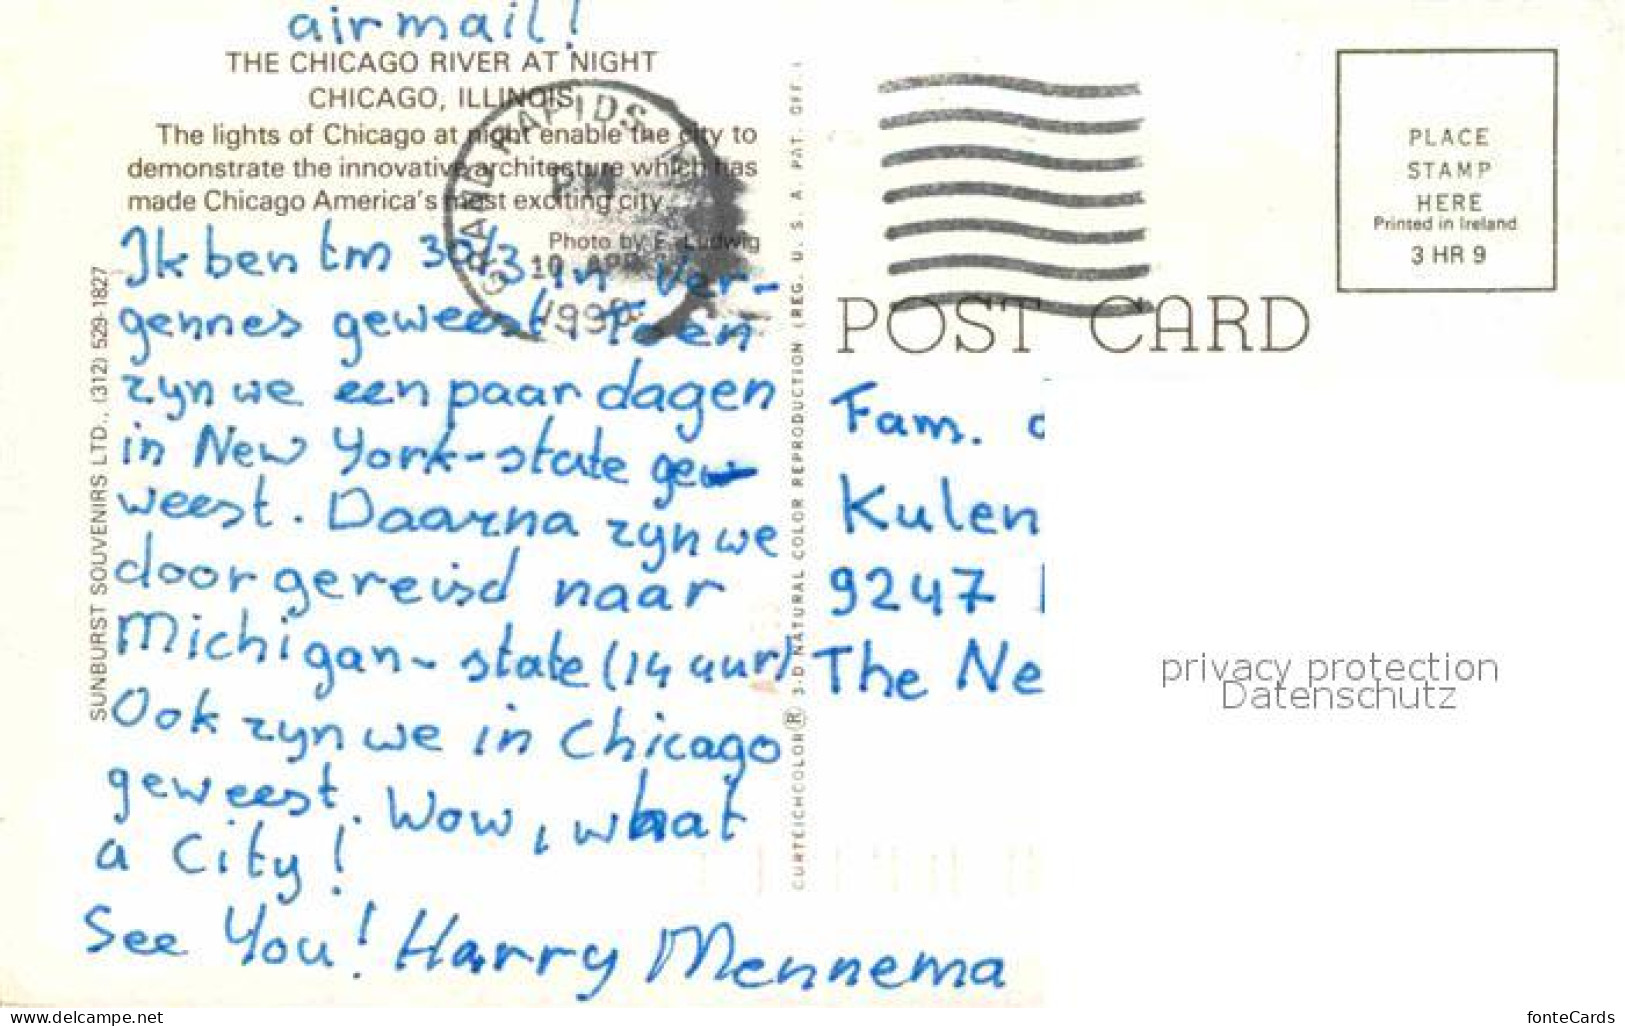 airmail!
THE CHICAGO RIVER AT NIGHT
CHICAGO, ILLINOIS
The lights of Chicago at night enable the city to
demonstrate the innovative architecture which has
made Chicago America's most exciting city
Photo by F. Ludwig
GRAND RAPIDS
PM
10 APR
1990
Ik ben tm 30/3 in Ver-
gennes geweest. Toen
zyn we een paar dagen
in New York-state gew
weest. Daarna zyn we
doorgereisd naar
Michigan-state (14 uur)
Ook zyn we in Chicago
geweest. Wow, what
a City!
See You! Harry Mennema
SUNBURST SOUVENIRS LTD., (312) 529-1827
CURTEICHCOLOR ® 3-D NATURAL COLOR REPRODUCTION (REG. U. S. A. PAT. OFF.)
PLACE
STAMP
HERE
Printed in Ireland
3 HR 9
POST CARD
Fam.
Kulen
9247
The Ne
privacy protection
Datenschutz
www.delcampe.net
fonteCards